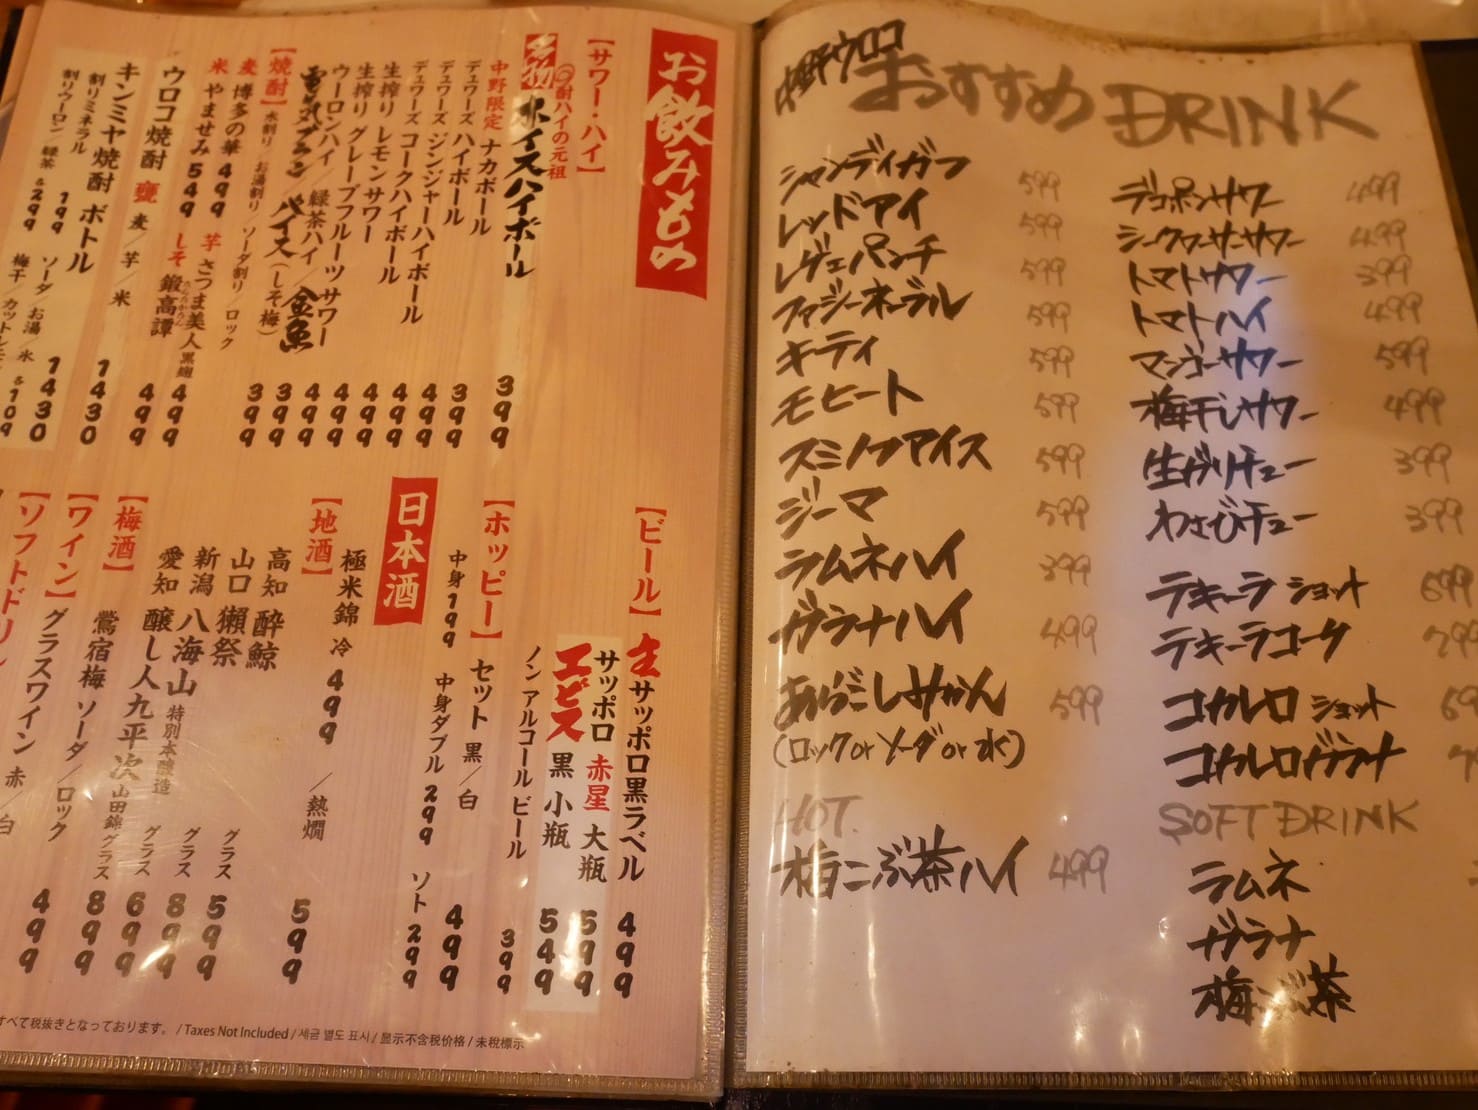 お飲みもの
【サワー・ハイ】
酎ハイの元祖
名物 ホイスハイボール 399
中野限定 ナカポール 399
デュワーズ ハイボール 399
デュワーズ ジンジャーハイボール 499
デュワーズ コークハイボール 499
生搾り レモンサワー 499
生搾り グレープフルーツサワー 499
ウーロンハイ/緑茶ハイ/金魚 499
電気ブラン/バイス(しそ梅) 399
【焼酎】水割り/お湯割り/ソーダ割り/ロック 399
麦 博多の華 499 芋 さつま美人 黒麹 499
米 やませみ 549 しそ 鍛高譚 499
ウロコ焼酎 甕 麦/芋/米 499
キンミヤ焼酎 ボトル 1430
割りミネラル 199 ソーダ/お湯/氷 1430
割りウーロン/緑茶 各299 梅干/カットレモン 各109
【ビール】
生サッポロ黒ラベル 499
サッポロ 赤星 大瓶 599
エビス 黒 小瓶 549
ノンアルコールビール 399
【ホッピー】セット 黒/白 499
中身199 中身ダブル299 ソト299
日本酒
極米錦 冷499/熱燗 599
【地酒】
高知 酔鯨
山口 獺祭 グラス 599
新潟 八海山 特別本醸造 グラス 899
愛知 醸し人九平次 山田錦 グラス 699
【梅酒】鶯宿梅 ソーダ/ロック 899
【ワイン】グラスワイン 赤/白 499
【ソフトドリン
すべて税抜きとなっております。/ Taxes Not Included / 세금 별도 표시 / 显示不含税价格 / 未稅標示
中野ウロコ
おすすめ DRINK
シャンディガフ 599
レッドアイ 599
レゲェパンチ 599
ファジーネーブル 599
キティ 599
モヒート 599
スミノフアイス 599
ジーマ 599
ラムネハイ 399
ガラナハイ 499
あらごしみかん 599
(ロック or ソーダ or 水)
HOT.
梅こぶ茶ハイ 499
デコポンサワー 499
シークワーサーサワー 499
トマトサワー 399
トマトハイ 499
マンゴーサワー 599
梅干しサワー 499
生ガリチュー 399
わさびチュー 399
テキーラ ショット 699
テキーラコーク
コカレロ ショット
コカレロガラナ
SOFT DRINK
ラムネ
ガラナ
梅こぶ茶